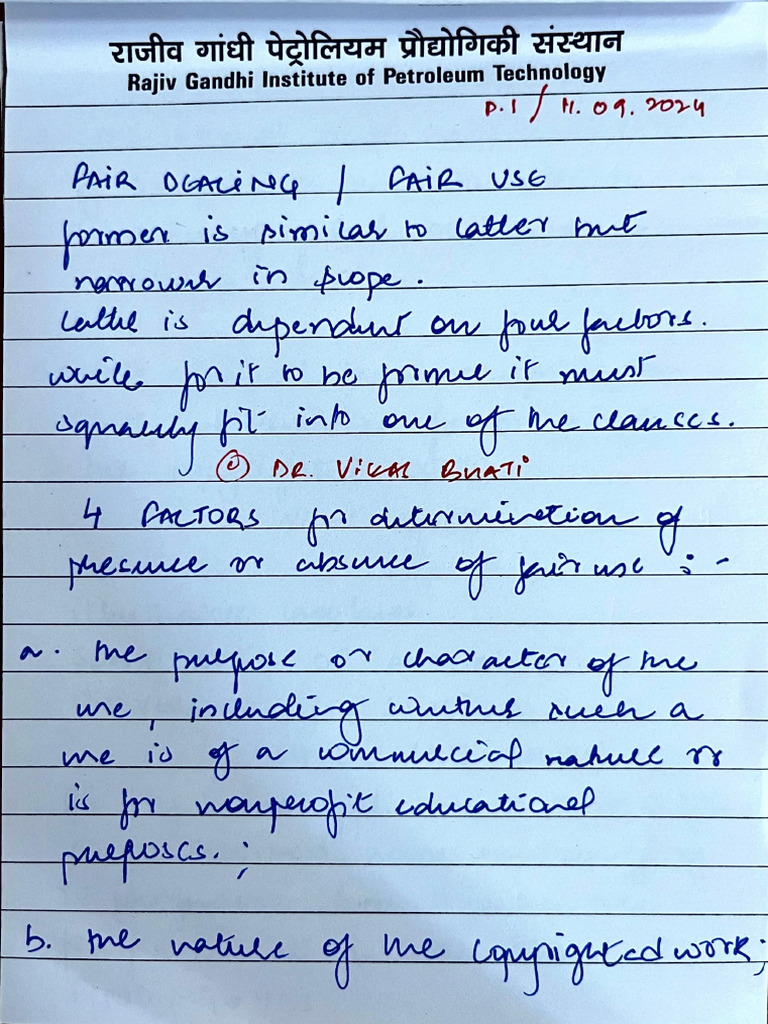 राजीव गांधी पेट्रोलियम प्रौद्योगिकी संस्थान
Rajiv Gandhi Institute of Petroleum Technology
P.1 / 11.09.2024
FAIR DEALING / FAIR USE
former is similar to latter but
narrower in scope.
latter is dependent on four factors.
while for it to be former it must
squarely fit into one of the clauses.
© DR. VIKAS BHATI
4 FACTORS for determination of
presence or absence of fair use :-
a. the purpose or character of the
use, including whether such a
use is of a commercial nature or
is for nonprofit educational
purposes.;
b. the nature of the copyrighted work;